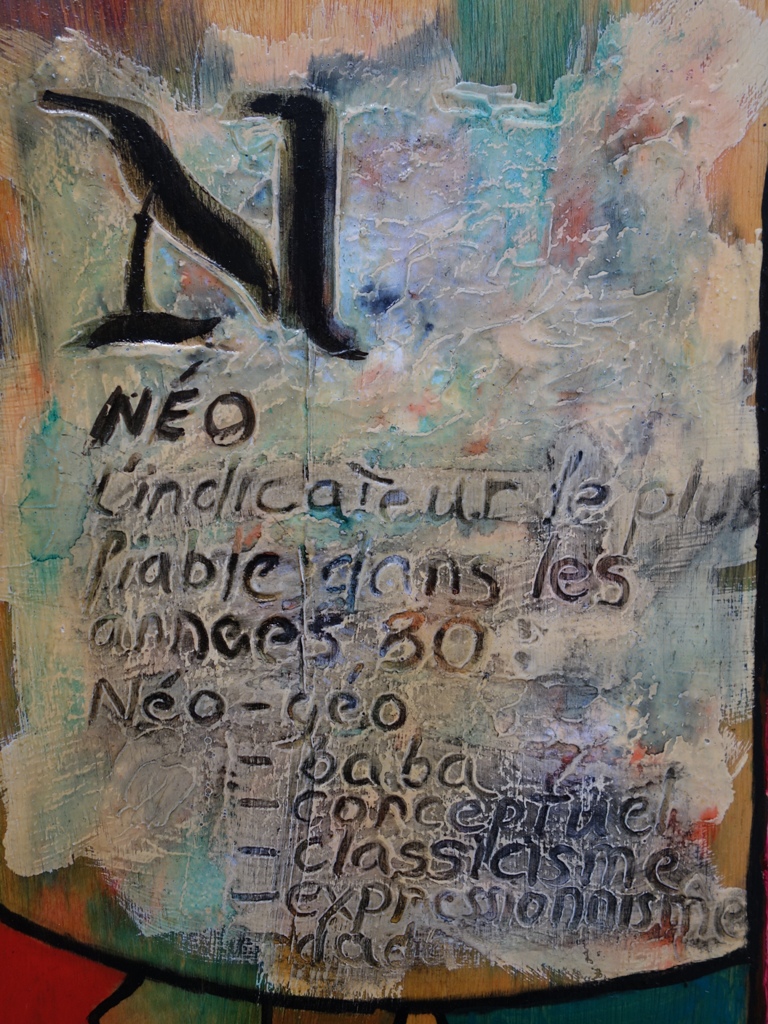 N
NÉO
L'indicateur le plus
fiable dans les
annees 80 :
Néo-géo
- baba
- conceptuel
- classicisme
- expressionnisme